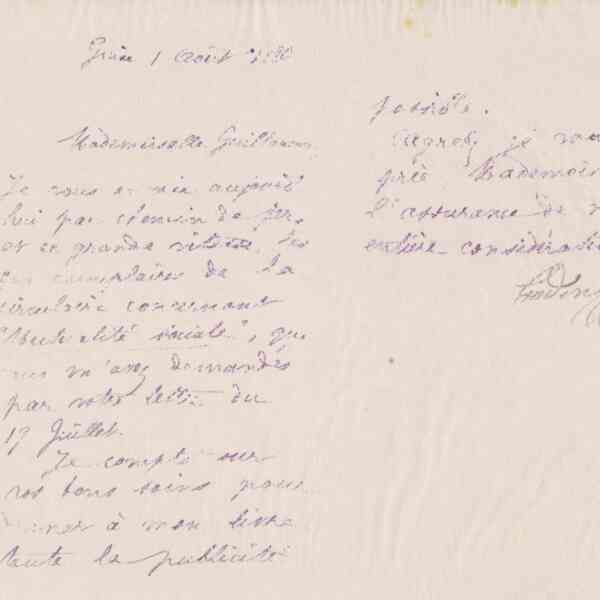 Guise 1 Août 1886
Mademoiselle Guillaumin
Je vous envoie aujourd'
hui par chemin de fer
et en grande vitesse, les
exemplaires de la
circulaire concernant
"Mutualité sociale", que
vous m'avez demandés
par votre lettre du
17 Juillet.
Je compte sur
vos bons soins pour
donner à mon livre
toute la publicité
possible.
Agréez je vous
prie Mademois
l'assurance de m
entière considérati